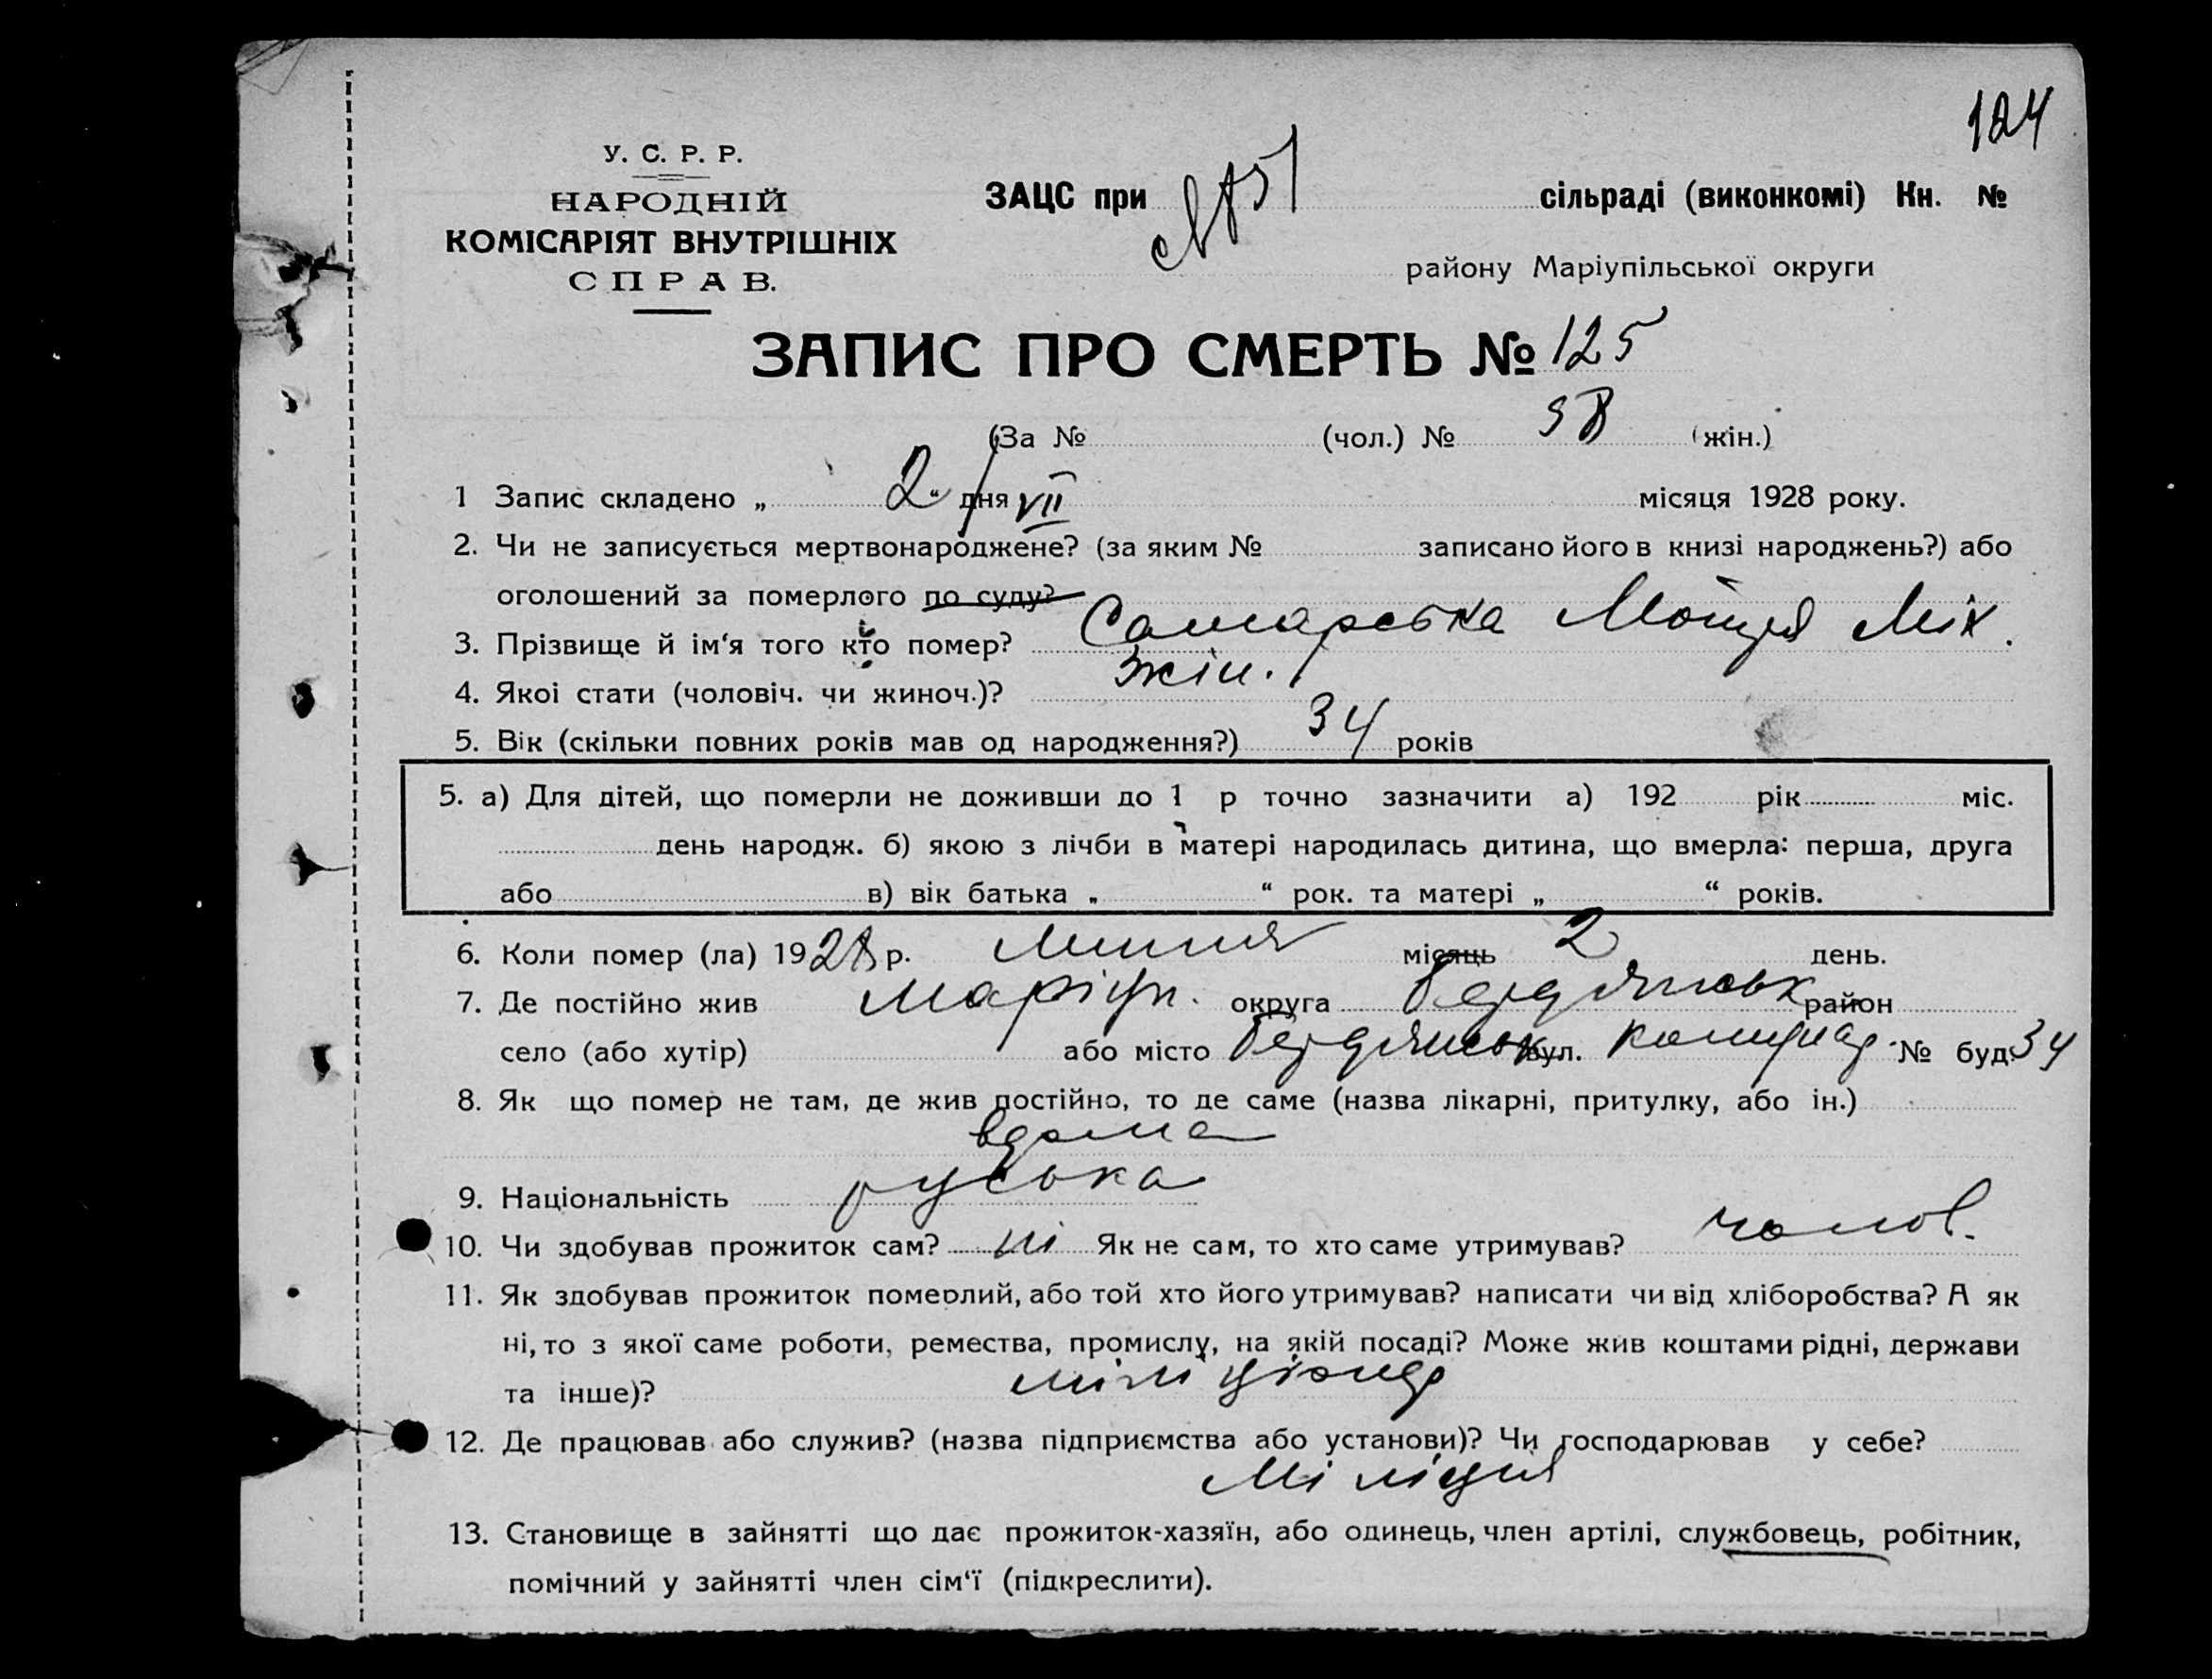 124
У. С. Р. Р.
НАРОДНІЙ
КОМІСАРІЯТ ВНУТРІШНІХ
СПРАВ.
ЗАЦС при сільраді (виконкомі) Кн. №
району Маріупільської округи
ЗАПИС ПРО СМЕРТЬ № 125
(За № (чол.) № 58 (жін.)
1 Запис складено „ 2 “ дня VII місяця 1928 року.
2. Чи не записується мертвонароджене? (за яким № записано його в книзі народжень?) або
оголошений за померлого по суду?
3. Прізвище й ім'я того кто помер? Самарська Мотря Мих.
4. Якоі стати (чоловіч. чи жиноч.)? жін.
5. Вік (скільки повних років мав од народження?) 34 років
5. а) Для дітей, що померли не доживши до 1 р точно зазначити а) 192 рік міс.
день народж. б) якою з лічби в матері народилась дитина, що вмерла: перша, друга
або в) вік батька „ “ рок. та матері „ “ років.
6. Коли помер (ла) 1928 р. липня місяць 2 день.
7. Де постійно жив Маріуп. округа Бердянськ район
село (або хутір) або місто Бердянськ вул. № буд. 34
8. Як що помер не там, де жив постійно, то де саме (назва лікарні, притулку, або ін.)
вдома
9. Національність руська
10. Чи здобував прожиток сам? ні Як не сам, то хто саме утримував? чолов.
11. Як здобував прожиток померлий, або той хто його утримував? написати чи від хліборобства? А як
ні, то з якої саме роботи, ремества, промислу, на якій посаді? Може жив коштами рідні, держави
та інше)? міліціонер
12. Де працював або служив? (назва підприємства або установи)? Чи господарював у себе?
Міліція
13. Становище в зайнятті що дає прожиток-хазяїн, або одинець, член артілі, службовець, робітник,
помічний у зайнятті член сім'ї (підкреслити).